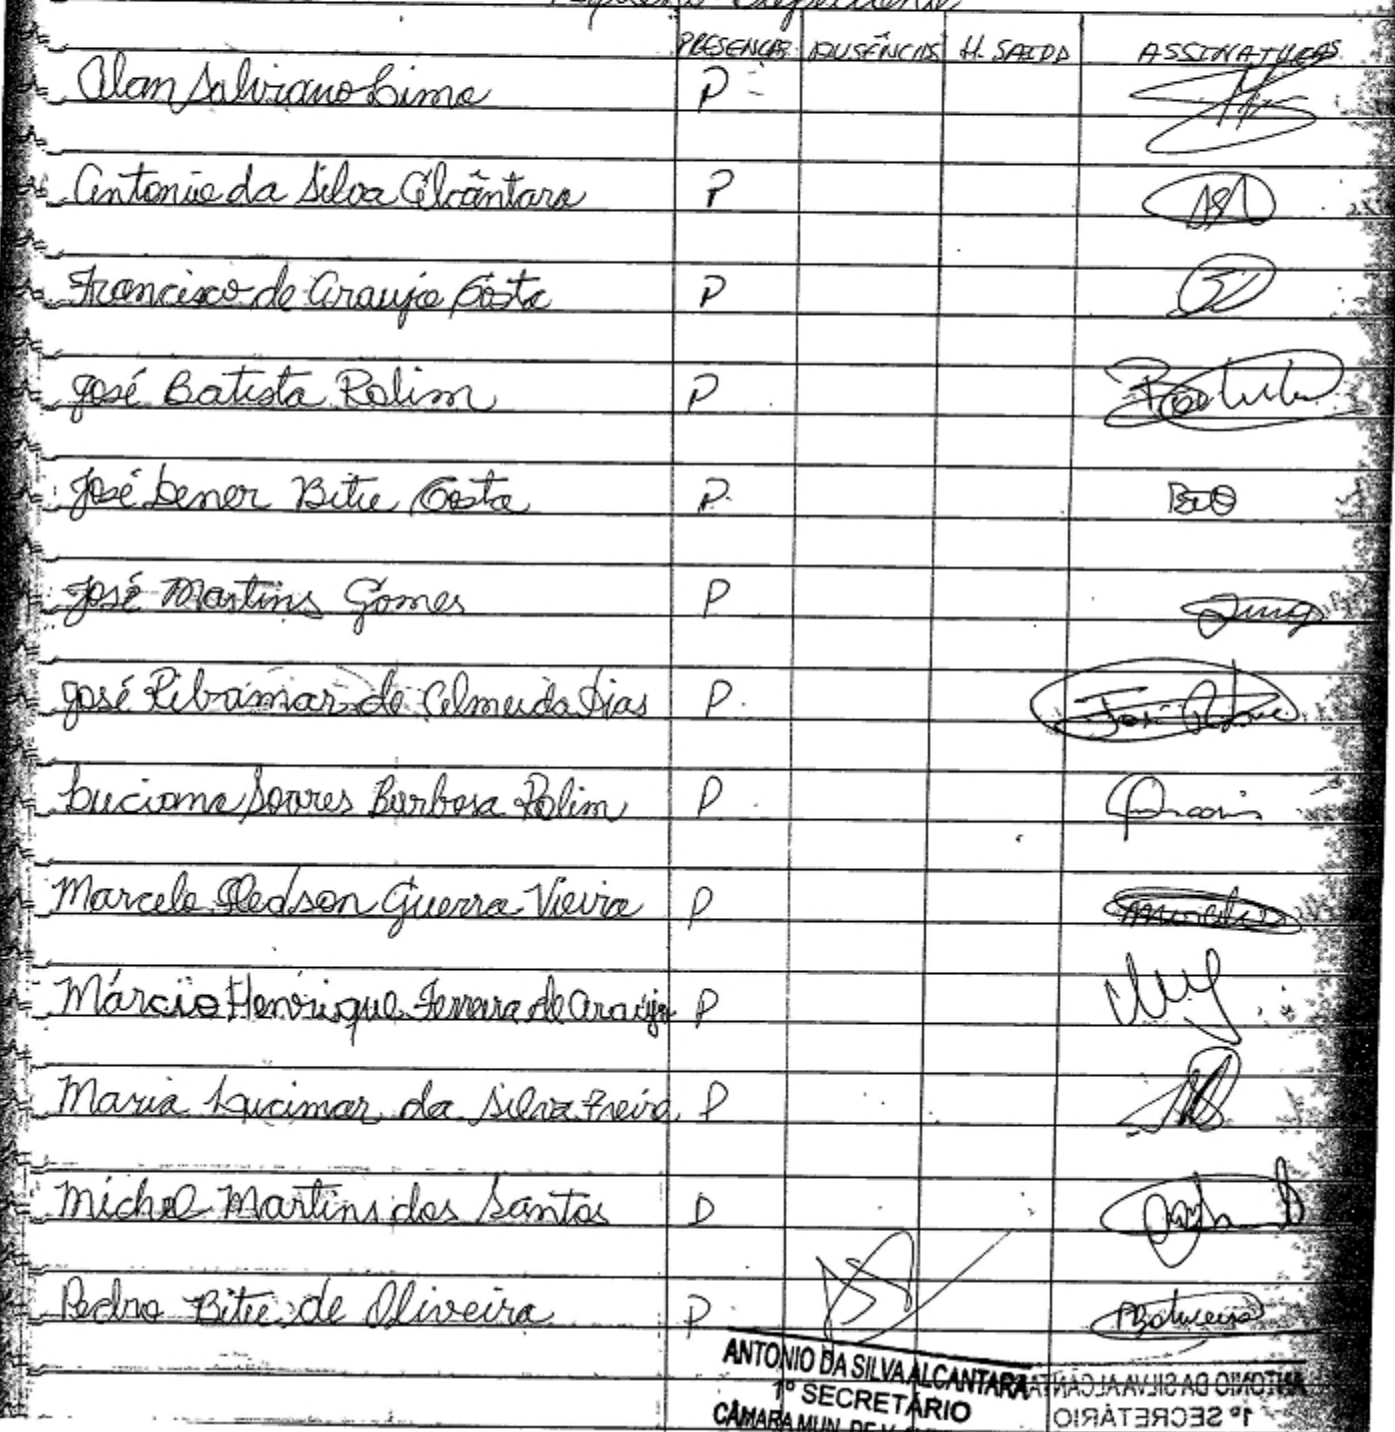 Pequeno Expediente
PRESENÇAS AUSÊNCIAS H. SAIDA ASSINATURAS
Alan Salviano Lima P
Antonio da Silva Alcântara P
Francisco de Araujo Costa P
José Batista Rolim P Batista
José Lener Bitu Costa P
José Martins Gomes P
José Ribamar de Almeida Dias P José
Luciana Soares Barbosa Rolim P
Marcelo Gledson Guerra Vieira P
Márcio Henrique Ferreira de Araujo P
Maria Lucimar da Silva Freira P
Michel Martins dos Santos P
Pedro Bitu de Oliveira P
ANTONIO DA SILVA ALCANTARA ANTONIO DA SILVA ALCANTARA
1º SECRETÁRIO 1º SECRETÁRIO
CÂMARA MUN. DE V.